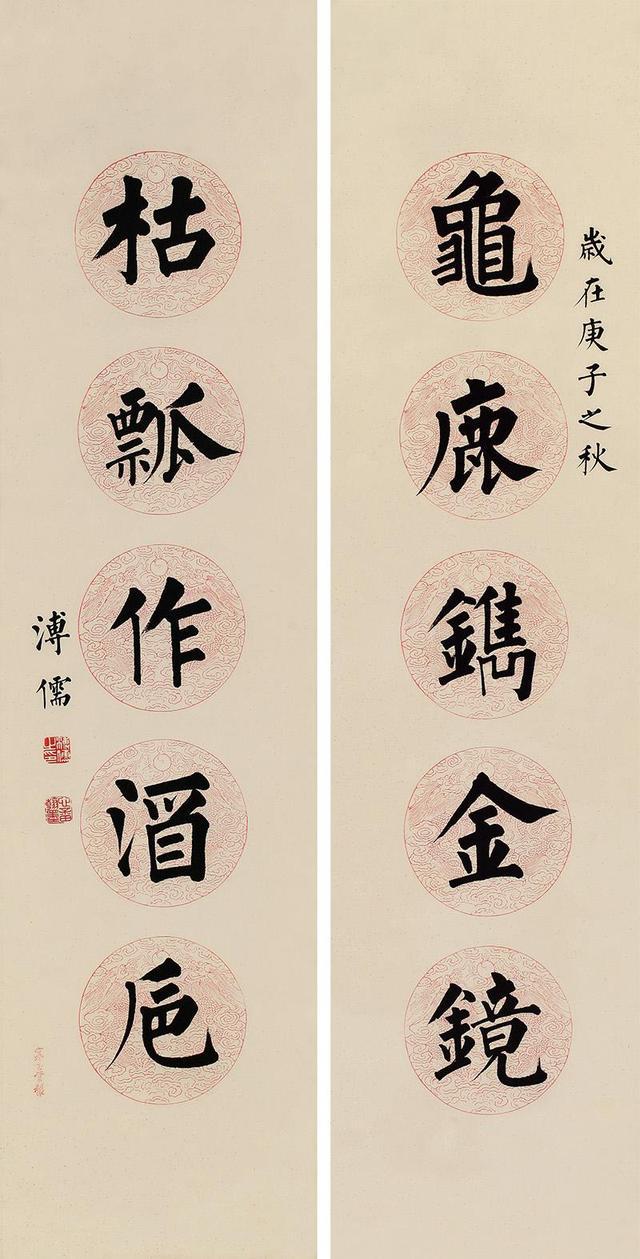 歲在庚子之秋
龜鹿鐫金鏡
枯瓢作酒巵
溥儒